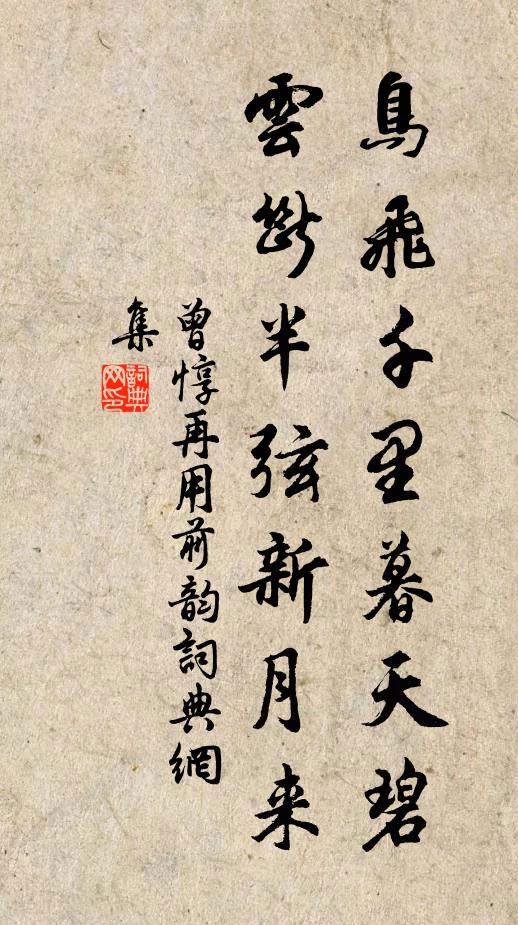 鳥飛千里暮天碧
雲斷半弦新月来
曾惇再用前韵詞典網
集
詞典
网印